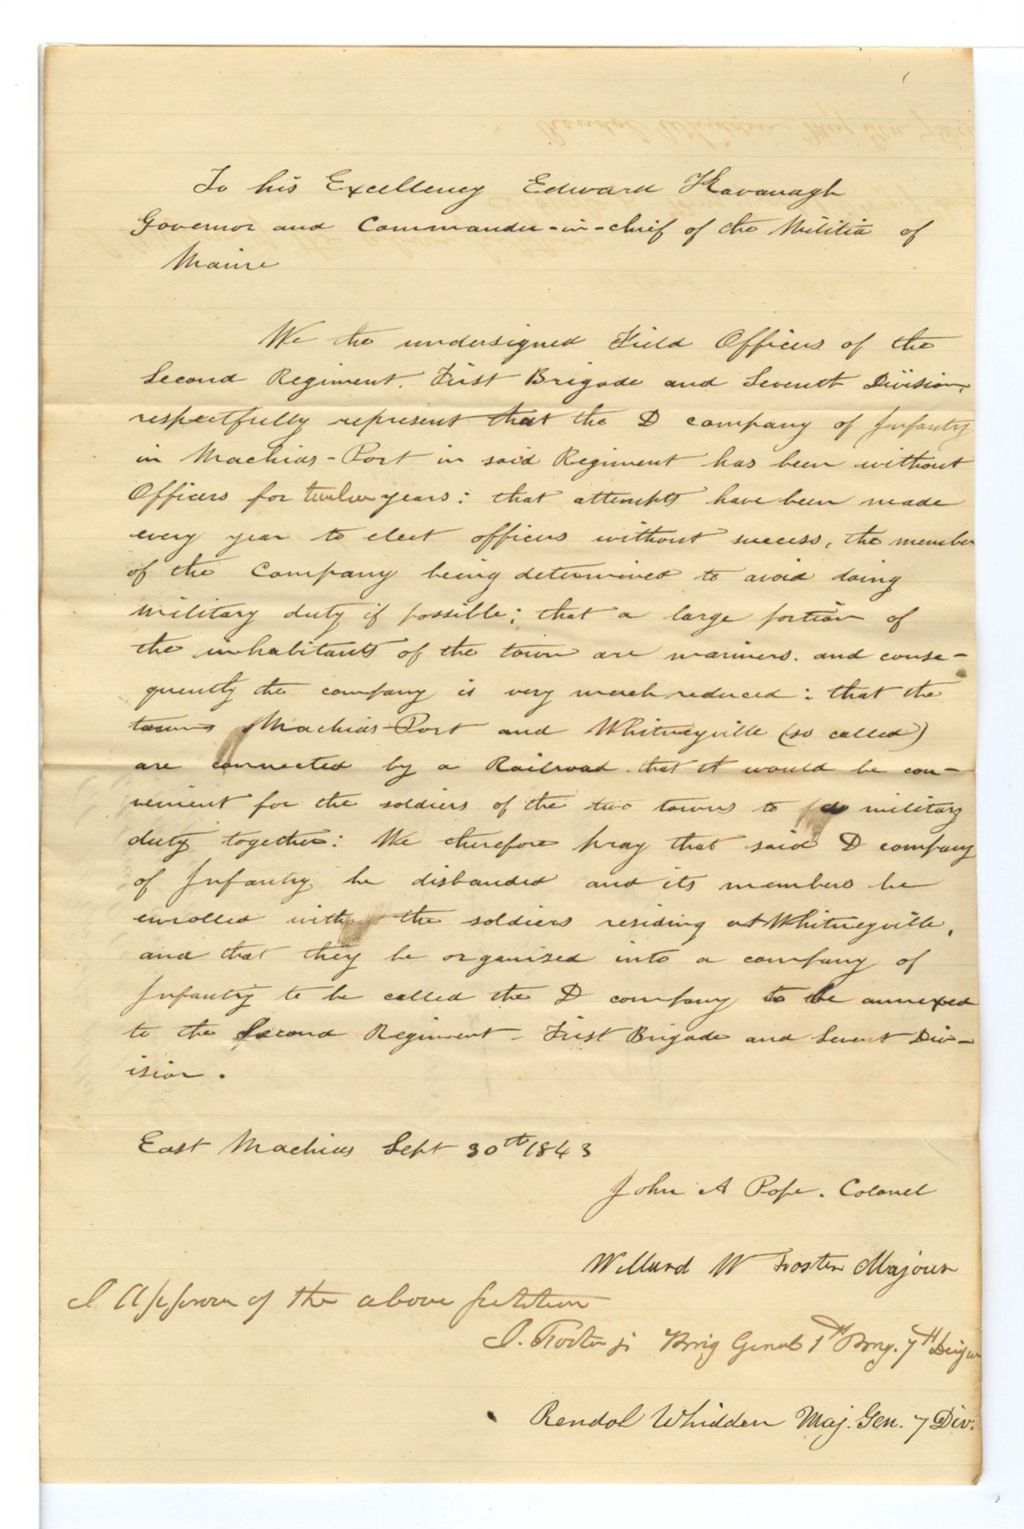 To his Excellency Edward Kavanagh
Governor and Commander-in-chief of the Militia of
Maine
We the undersigned Field Officers of the
Second Regiment. First Brigade and Seventh Division,
respectfully represent that the D company of Infantry
in Machias-Port in said Regiment has been without
Officers for twelve years: that attempts have been made
every year to elect officers without success, the member
of the Company being determined to avoid doing
military duty if possible; that a large portion of
the inhabitants of the town are mariners. and conse-
quently the company is very much reduced: that the
towns Machias-Port and Whitneyville (so called)
are connected by a Railroad. that it would be con-
venient for the soldiers of the two towns to do military
duty together: We therefore pray that said D company
of Infantry be disbanded and its members be
enrolled with the soldiers residing at Whitneyville,
and that they be organised into a company of
Infantry to be called the D company to be annexed
to the Second Regiment - First Brigade and Sevent Div-
ision.
East Machias Sept 30th 1843
John A Pope. Colonel
Willard W Foster Majour
I Approve of the above petition
Foster jr Brig Genal 1st Brig. 7th
Rendol Whidden Maj. Gen. 7 Div.